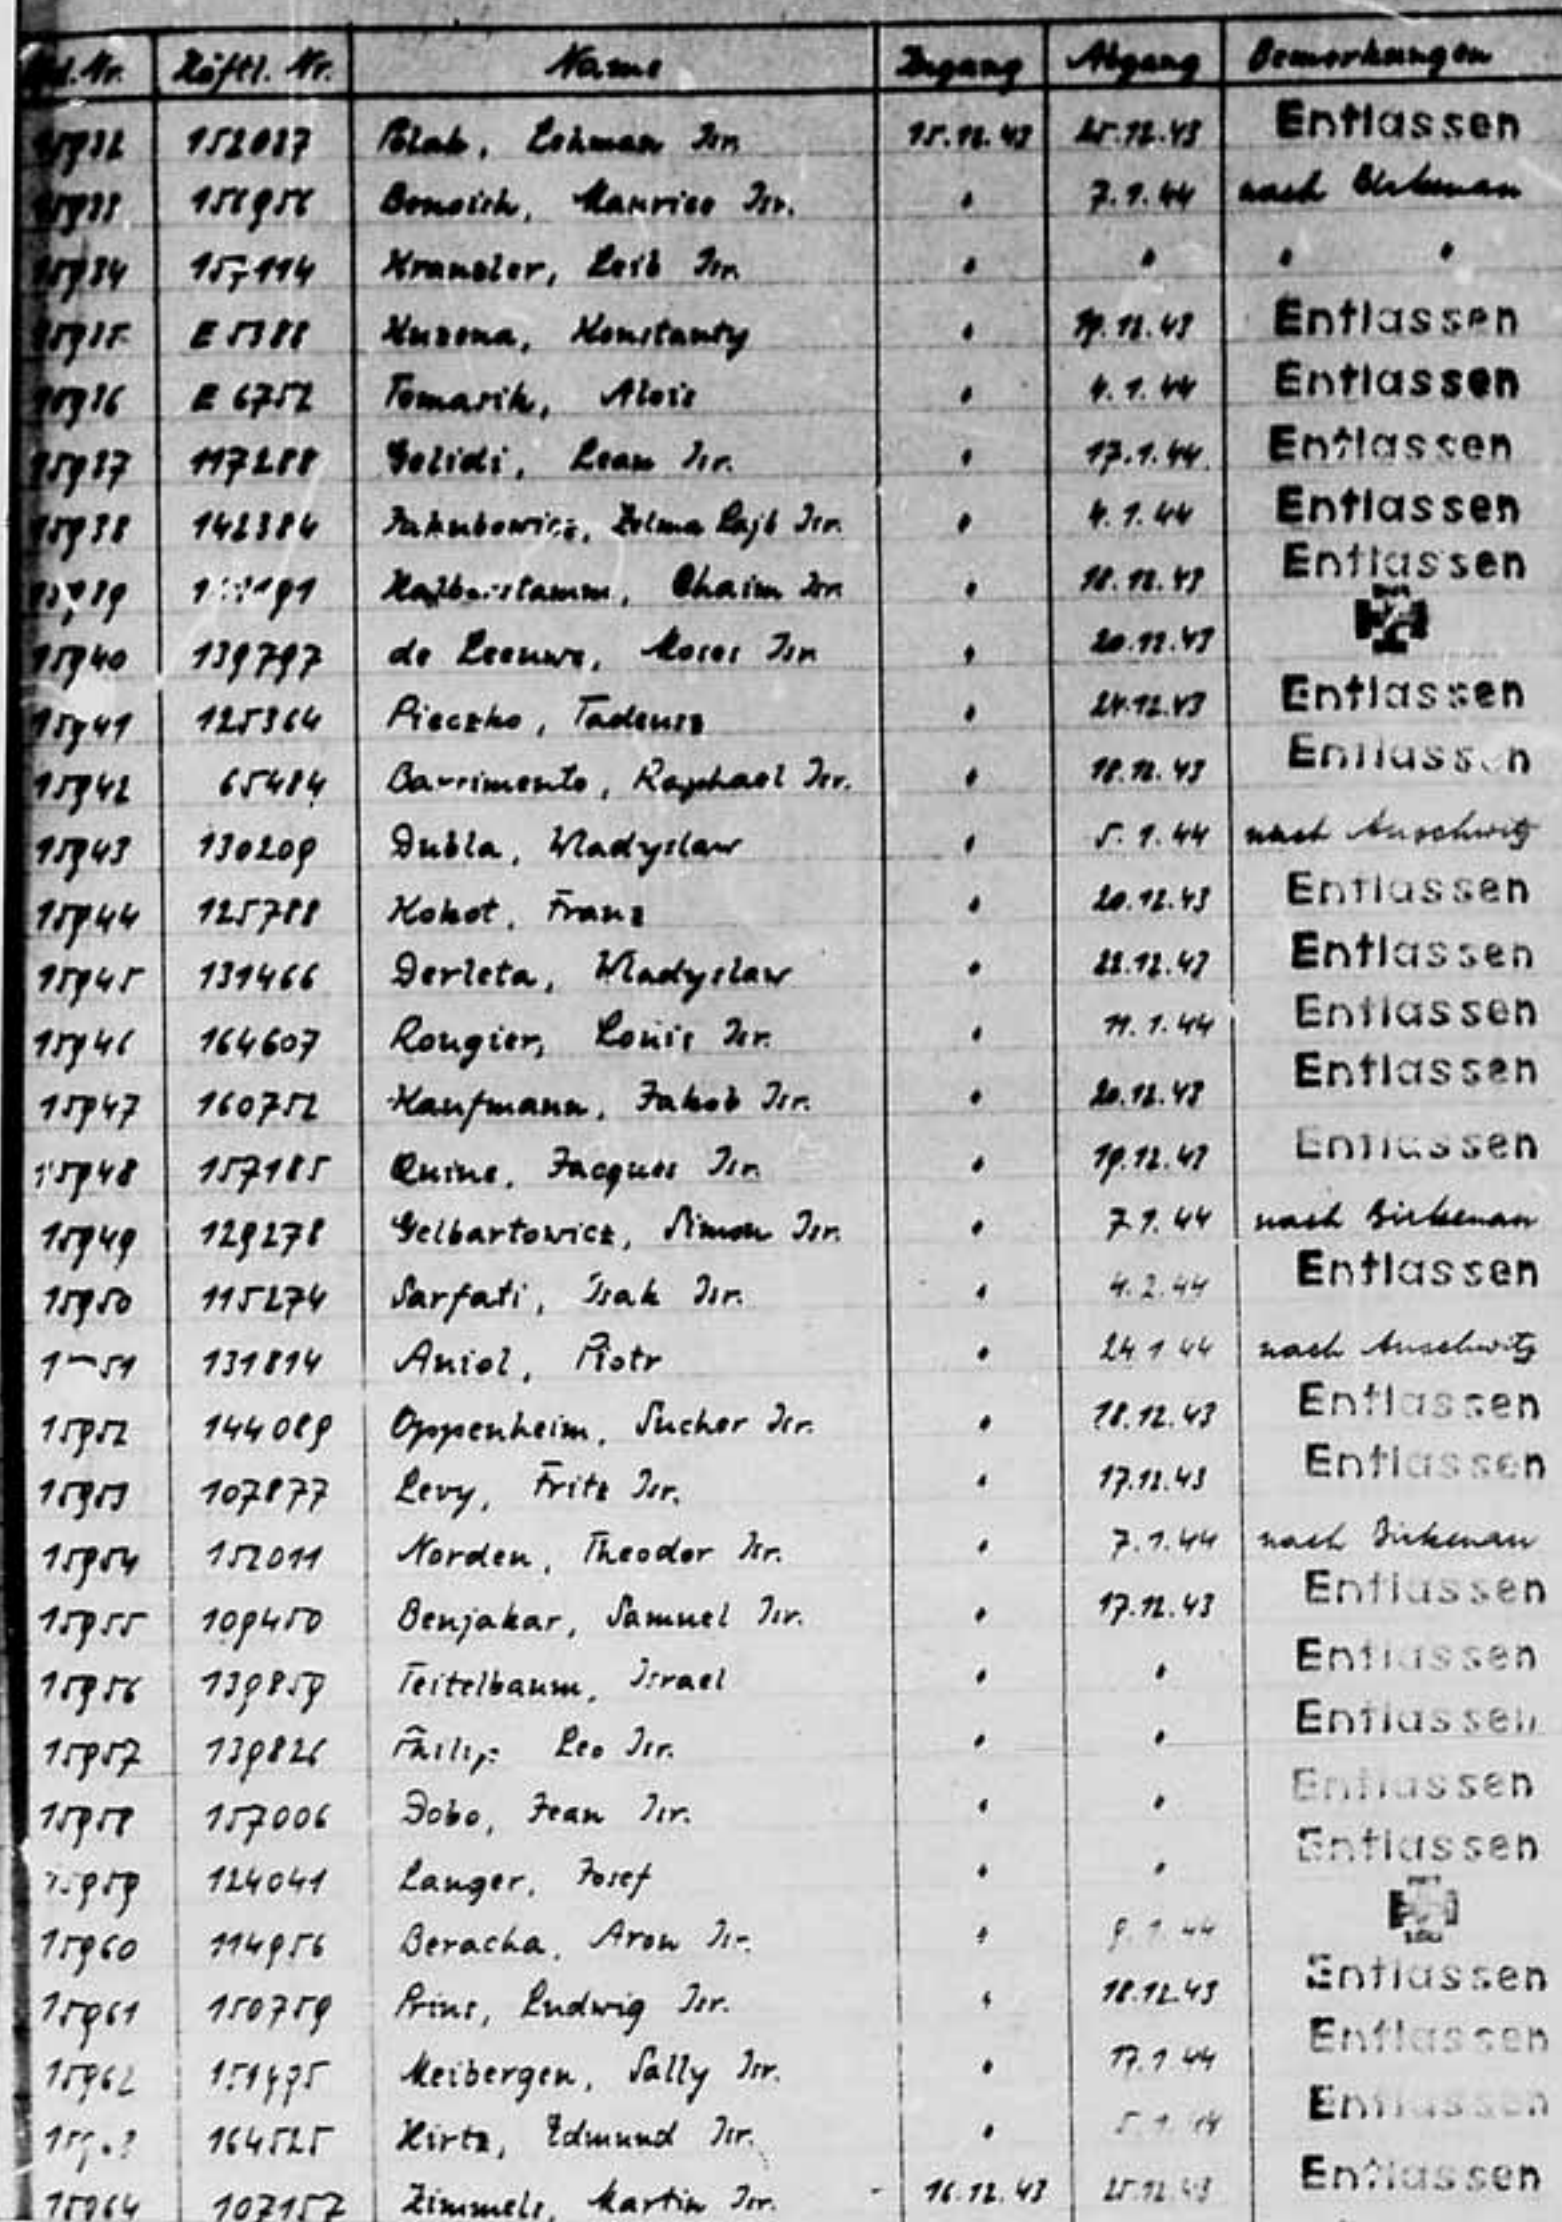 Lfd.Nr. Häftl. Nr. Name Zugang Abgang Bemerkungen
15932 152037 Blak, Lehman Isr. 15.12.43 25.12.43 Entlassen
15933 156956 Bonoich, Maurice Isr. " 7.1.44 nach Birkenau
15934 157114 Kransler, Leib Isr. " " " "
15935 E 5388 Kuzena, Konstanty " 19.12.43 Entlassen
15936 E 6752 Tomasik, Alois " 4.1.44 Entlassen
15937 117288 Golidi, Lean Isr. " 17.1.44. Entlassen
15938 142384 Jakubowicz, Zelma Lajb Isr. " 4.1.44 Entlassen
15939 Halberstamm, Chaim Isr. " 18.12.43 Entlassen
15940 139797 de Leeuwe, Moses Isr. " 20.12.43
15941 125364 Pieczko, Tadeusz " 24.12.43 Entlassen
15942 65484 Barrimento, Raphael Isr. " 18.12.43 Entlassen
15943 130209 Dubla, Wladyslaw " 5.1.44 nach Auschwitz
15944 125788 Kokot, Franz " 20.12.43 Entlassen
15945 131466 Derleta, Wladyslaw " 22.12.43 Entlassen
15946 164607 Rougier, Louis Isr. " 11.1.44 Entlassen
15947 160752 Kaufmann, Jakob Isr. " 20.12.43 Entlassen
15948 157185 Quine, Jacques Isr. " 19.12.43 Entlassen
15949 129278 Gelbartowicz, Simon Isr. " 7.1.44 nach Birkenau
15950 115274 Sarfati, Isak Isr. " 4.2.44 Entlassen
131814 Aniol, Piotr " 24 1 44 nach Auschwitz
15952 144089 Oppenheim, Sucher Isr. " 18.12.43 Entlassen
15953 107877 Levy, Fritz Isr. " 17.12.43 Entlassen
15954 152011 Norden, Theodor Isr. " 7.1.44 nach Birkenau
15955 109450 Benjakar, Samuel Isr. " 17.12.43 Entlassen
15956 139859 Teitelbaum, Israel " " Entlassen
15957 139826 Leo Isr. " " Entlassen
15958 157006 Dobo, Jean Isr. " " Entlassen
15959 124041 Langer, Josef " " Entlassen
15960 114956 Beracha, Aron Isr. " 9.1.44
15961 150759 Prins, Ludwig Isr. " 18.12.43 Entlassen
15962 151475 Meibergen, Sally Isr. " 17.1 44 Entlassen
164525 Hirtz, Edmund Isr. " 5.1.44 Entlassen
15964 107157 Zimmels, Martin Isr. 16.12.43 25.12.43 Entlassen